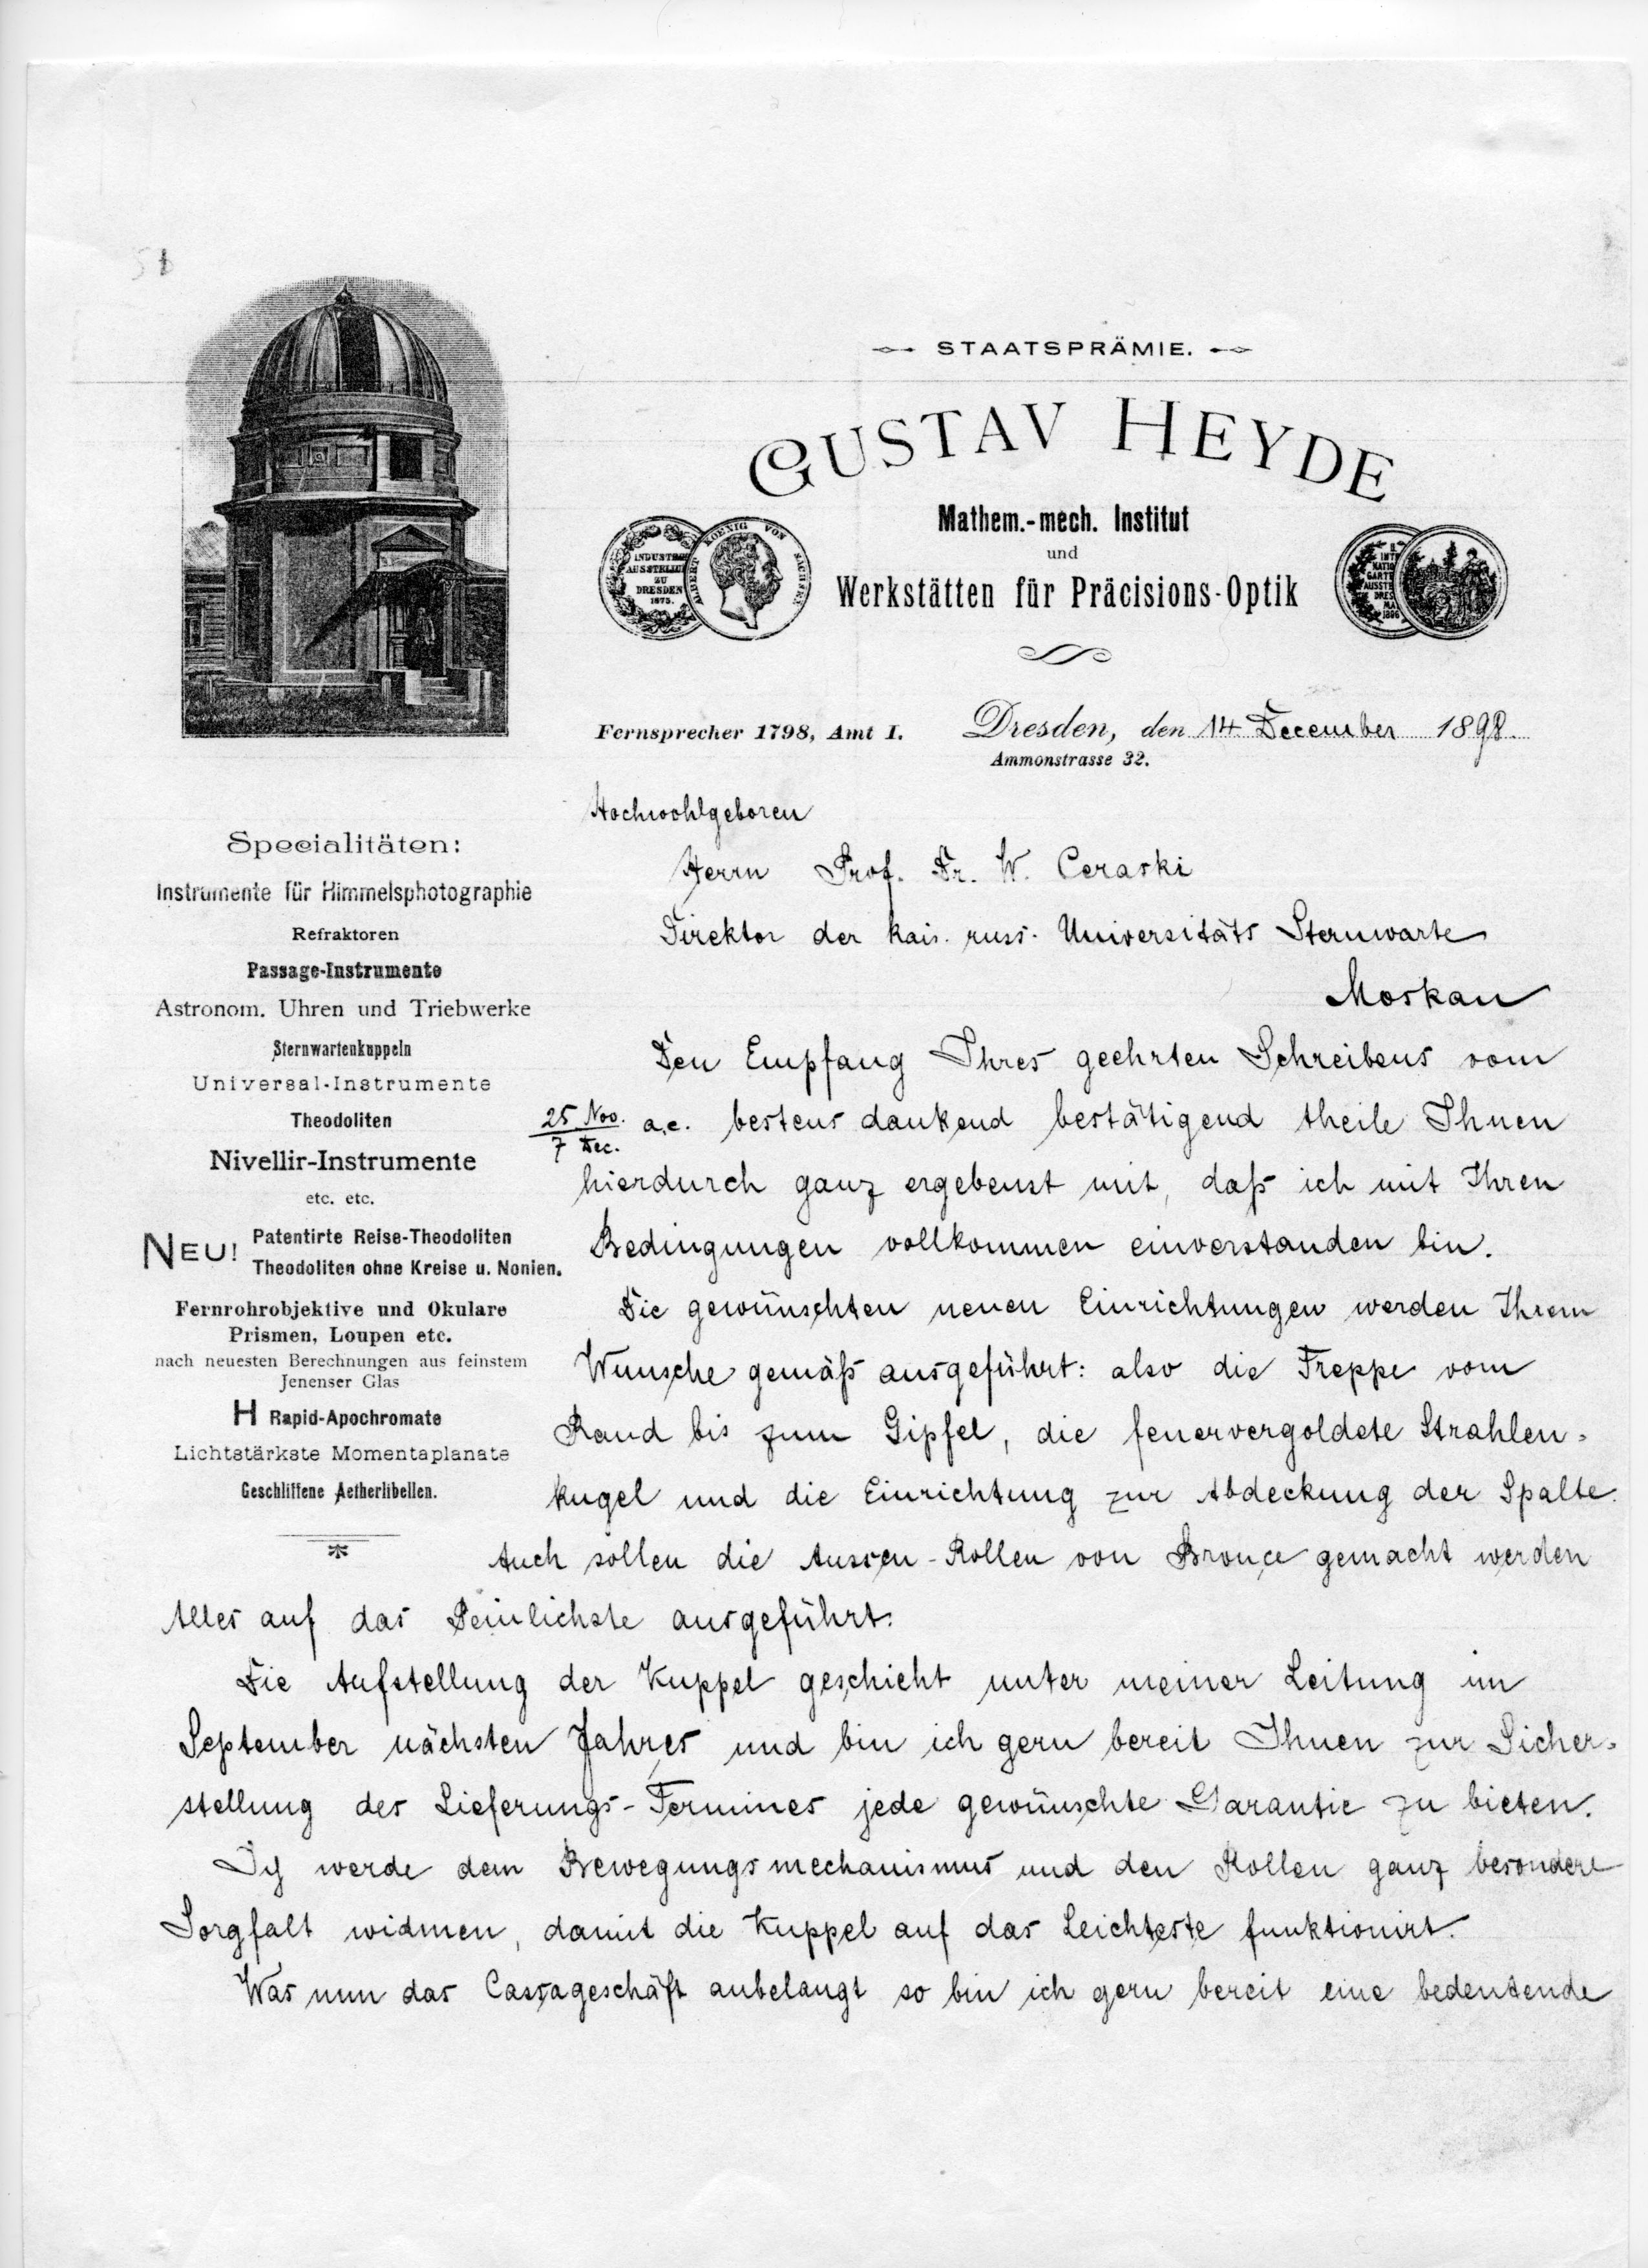 STAATSPRÄMIE.
GUSTAV HEYDE
Mathem.-mech. Institut
und
Werkstätten für Präcisions-Optik
INDUSTRIE
AUSSTELLU
ZU
DRESDEN
1875.
ALBERT KOENIG VON SACHSEN
II.
INTE
NATIO
GARTE
AUSSTE
DRES
MA
1896
Fernsprecher 1798, Amt I.
Dresden, den 14 December 1898.
Ammonstrasse 32.
Specialitäten:
Instrumente für Himmelsphotographie
Refraktoren
Passage-Instrumente
Astronom. Uhren und Triebwerke
Sternwartenkuppeln
Universal-Instrumente
Theodoliten
Nivellir-Instrumente
etc. etc.
NEU! Patentirte Reise-Theodoliten
Theodoliten ohne Kreise u. Nonien.
Fernrohrobjektive und Okulare
Prismen, Loupen etc.
nach neuesten Berechnungen aus feinstem
Jenenser Glas
H Rapid-Apochromate
Lichtstärkste Momentaplanate
Geschliffene Aetherlibellen.
Hochwohlgeboren
Herrn Prof. Dr. W. Ceraski
Direktor der kais. russ. Universitäts Sternwarte
Moskau
Den Empfang Ihres geehrten Schreibens vom
25 Nov. / 7 Dec. a.c. bestens dankend bestätigend theile Ihnen
hierdurch ganz ergebenst mit, daß ich mit Ihren
Bedingungen vollkommen einverstanden bin.
Die gewünschten neuen Einrichtungen werden Ihrem
Wunsche gemäß ausgeführt: also die Treppe vom
Rand bis zum Gipfel, die feuervergoldete Strahlen-
kugel und die Einrichtung zur Abdeckung der Spalte.
Auch sollen die Aussen-Rollen von Bronce gemacht werden
Alles auf das Peinlichste ausgeführt.
Die Aufstellung der Kuppel geschieht unter meiner Leitung im
September nächsten Jahres und bin ich gern bereit Ihnen zur Sicher-
stellung des Lieferungs-Termines jede gewünschte Garantie zu bieten.
Ich werde dem Bewegungsmechanismus und den Rollen ganz besondere
Sorgfalt widmen, damit die Kuppel auf das Leichteste funktionirt.
Was nun das Cassageschäft anbelangt so bin ich gern bereit eine bedeutende